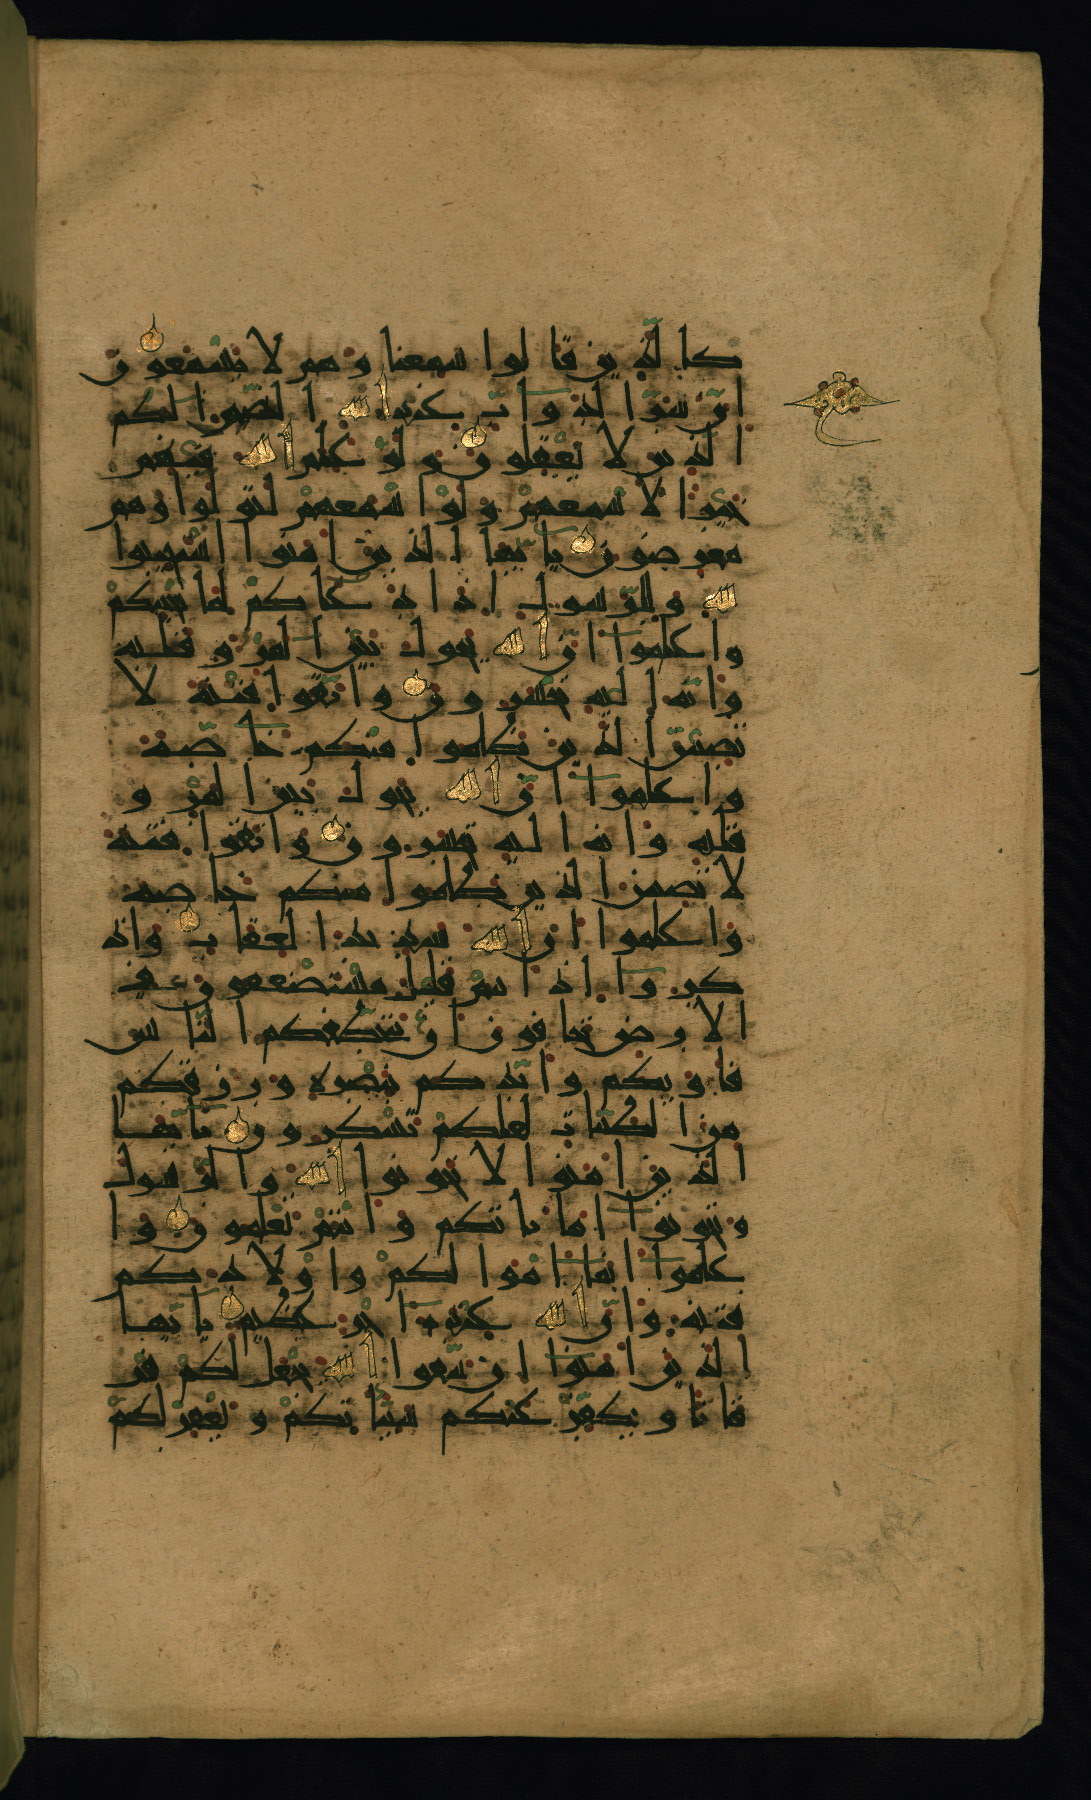 كالذين قالوا سمعنا وهم لا يسمعون
ان شر الدواب عند الله الصم البكم
الذين لا يعقلون ولو علم الله فيهم
خيرا لاسمعهم ولو اسمعهم لتولوا وهم
معرضون يا ايها الذين امنوا استجيبوا
لله وللرسول اذا دعاكم لما يحييكم
واعلموا ان الله يحول بين المرء وقلبه
وانه اليه تحشرون واتقوا فتنة لا
تصيبن الذين ظلموا منكم خاصة
واعلموا ان الله يحول بين المرء و
قلبه وانه اليه تحشرون واتقوا فتنة
لا تصيبن الذين ظلموا منكم خاصة
واعلموا ان الله شديد العقاب واذ
كروا اذ انتم قليل مستضعفون في
الارض تخافون ان يتخطفكم الناس
فاويكم وايدكم بنصره ورزقكم
من الطيبات لعلكم تشكرون يايها
الذين امنوا لا تخونوا الله والرسول
وتخونوا اماناتكم وانتم تعلمون وا
علموا انما اموالكم واولادكم
فتنة وان الله عنده اجر عظيم يايها
الذين امنوا ان تتقوا الله يجعل لكم فر
قانا ويكفر عنكم سيئاتكم ويغفر لكم